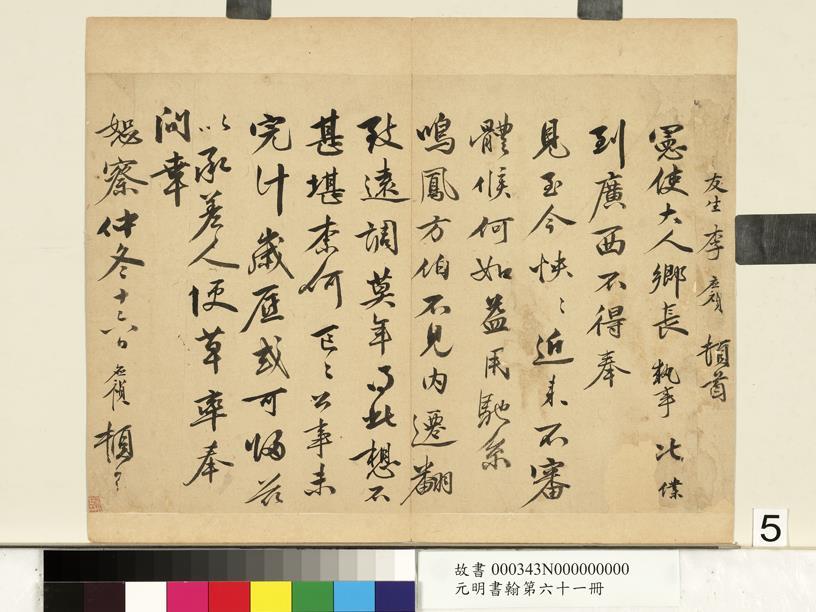 友生李賡頓首
憲使大人鄉長執事比僕
到廣西不得奉
見至今怏〻近來不審
體候何如益用馳系
鳴鳳方伯不見內遷翻
致遠調莫年得此想不
甚堪柰何〻〻公事未
完計歲底或可歸茲
以承差人便草率奉
問幸
恕察仲冬十六日名積頓首
5
故書 000343N000000000
元明書翰第六十一冊